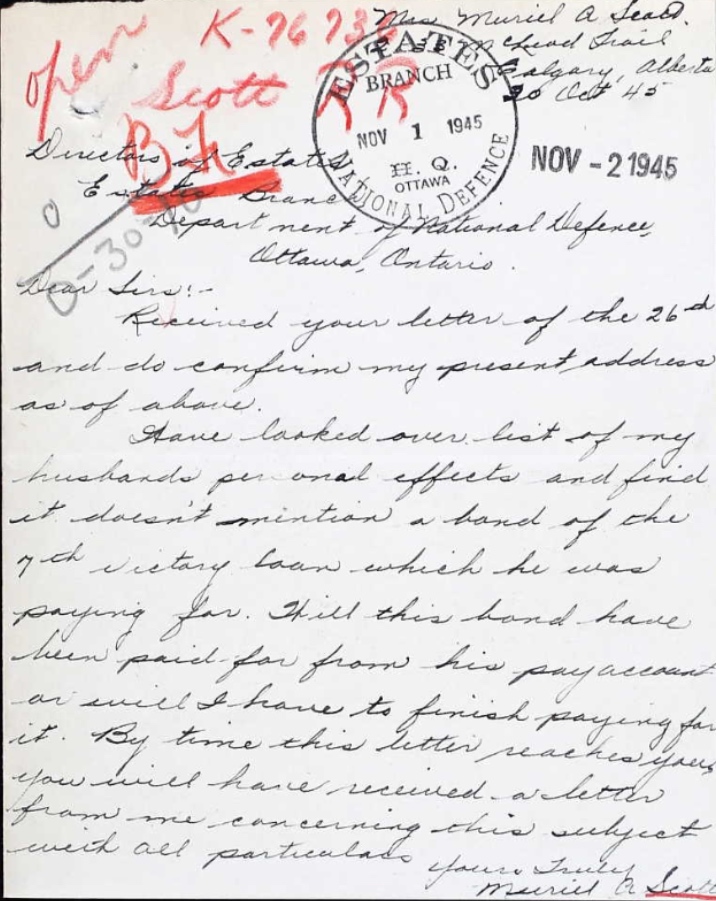 open K-76738
Scott
BF
Mrs Muriel A Scott.
McLeod Trail
Calgary, Alberta
30 Oct 45
ESTATES
BRANCH
NOV 1 1945
H. Q.
OTTAWA
NATIONAL DEFENCE
NOV - 2 1945
Directors of Estates
Estates Branch
Department of National Defence,
Ottawa, Ontario.
0-30
Dear Sirs:-
Received your letter of the 26th
and do confirm my present address
as of above.
Have looked over list of my
husbands personal effects and find
it doesn't mention a bond of the
7th victory loan which he was
paying for. Will this bond have
been paid for from his pay account
or will I have to finish paying for
it. By time this letter reaches you,
you will have received a letter
from me concerning this subject
with all particulars
Yours Truly
Muriel A Scott